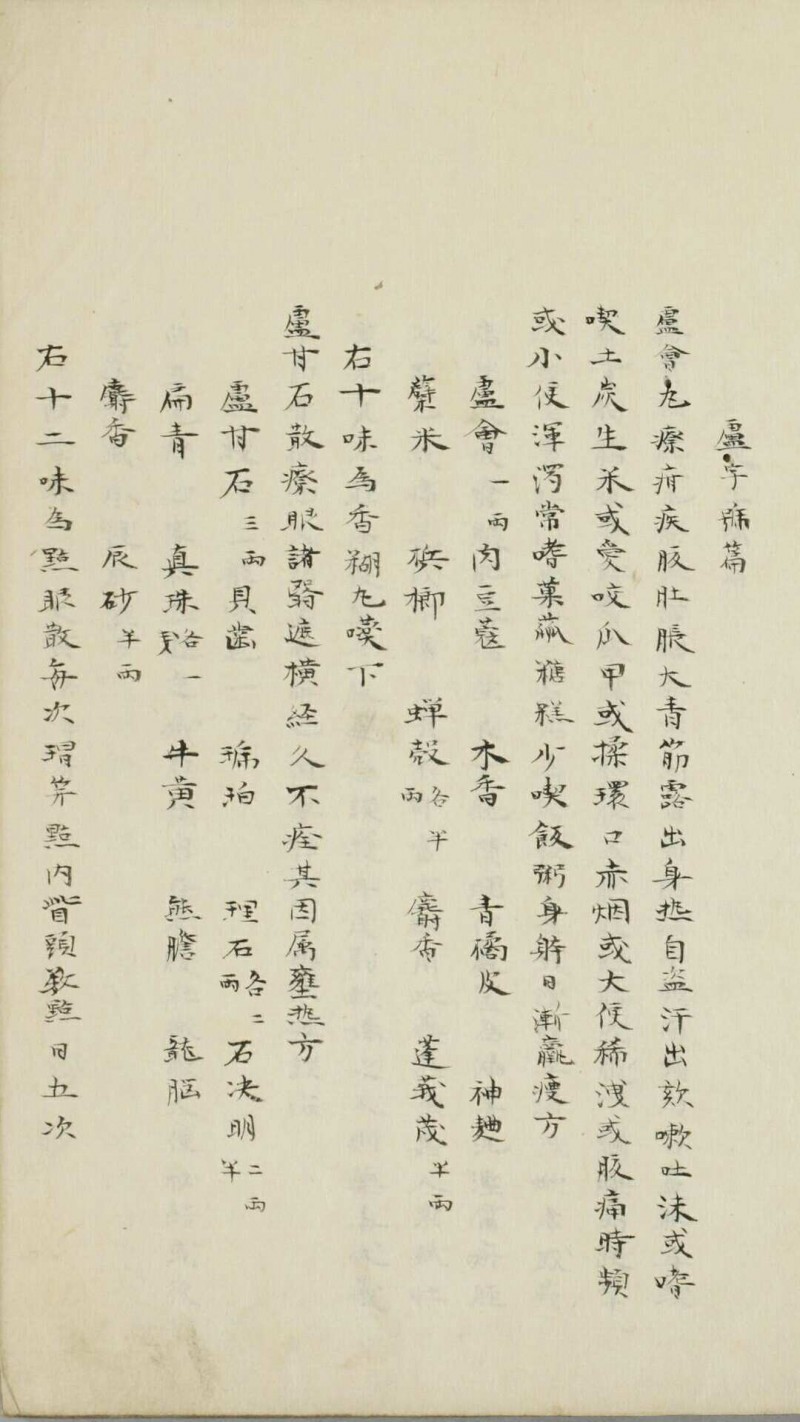 盧字號篇
盧會丸療疳疾腹肚脹大青筋露出身热自盜汗出欬嗽吐沫或嗜
喫土炭生米或愛咬爪甲或揉環口赤烟或大便稀洩或腹痛時頻
或小便渾濁常嗜菓蓏糖糕少喫飯粥身躰日漸羸瘦方
盧會一兩 肉豆蔲 木香 青橘皮 神麯
糵米 梹榔 蝉殼各半兩 麝香 蓬莪茂半兩
右十味為香糊丸嚥下
盧甘石散療眼諸翳遮橫経久不痊其因属壅热方
盧甘石三兩 貝齒 琥珀 理石各二兩 石决明二兩半
扁青 真珠各一 牛黄 熊膽 龍脳
麝香 辰砂半兩
右十二味為㸃眼散每次 㸃内眥頻㸃日五次